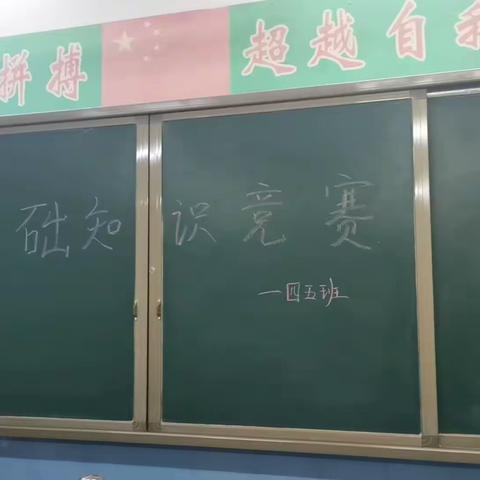 拼搏 超越自我
础知识竞赛
一四五班